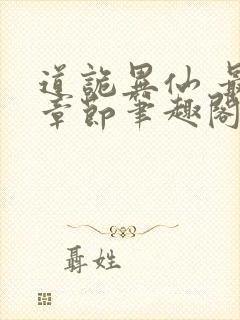 道詭異仙 最
章節筆趣閣
聶姓